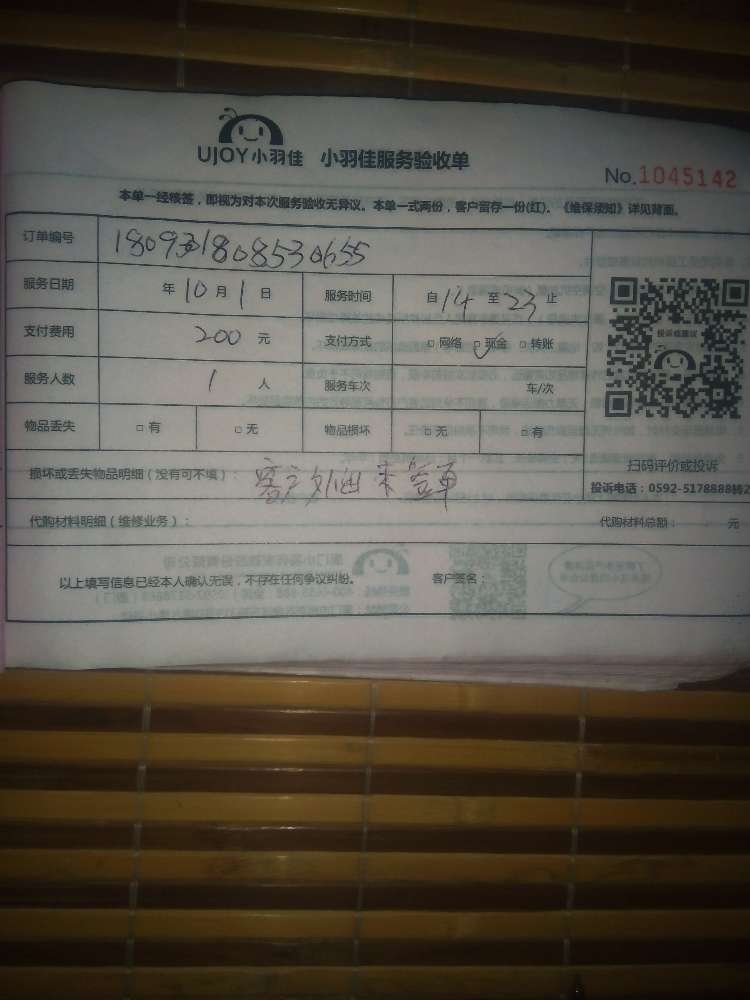 UJOY小羽佳 小羽佳服务验收单
No.1045142
本单一经核签，即视为对本次服务验收无异议。本单一式两份，客户留存一份(红)。《维保须知》详见背面。
订单编号
服务日期 年 10 月 1 日 服务时间 自 14 至 23 止
支付费用 200 元 支付方式 □ 网络 □ 现金 □ 转账
服务人数 1 人 服务车次 车/次
物品丢失 □ 有 □ 无 物品损坏 □ 无 □ 有
投诉或建议
扫码评价或投诉
投诉电话：0592-5178888转2
损坏或丢失物品明细（没有可不填）： 客户 未签单
代购材料明细（维修业务）： 代购材料总额： 元
以上填写信息已经本人确认无误，不存在任何争议纠纷。 客户签名：